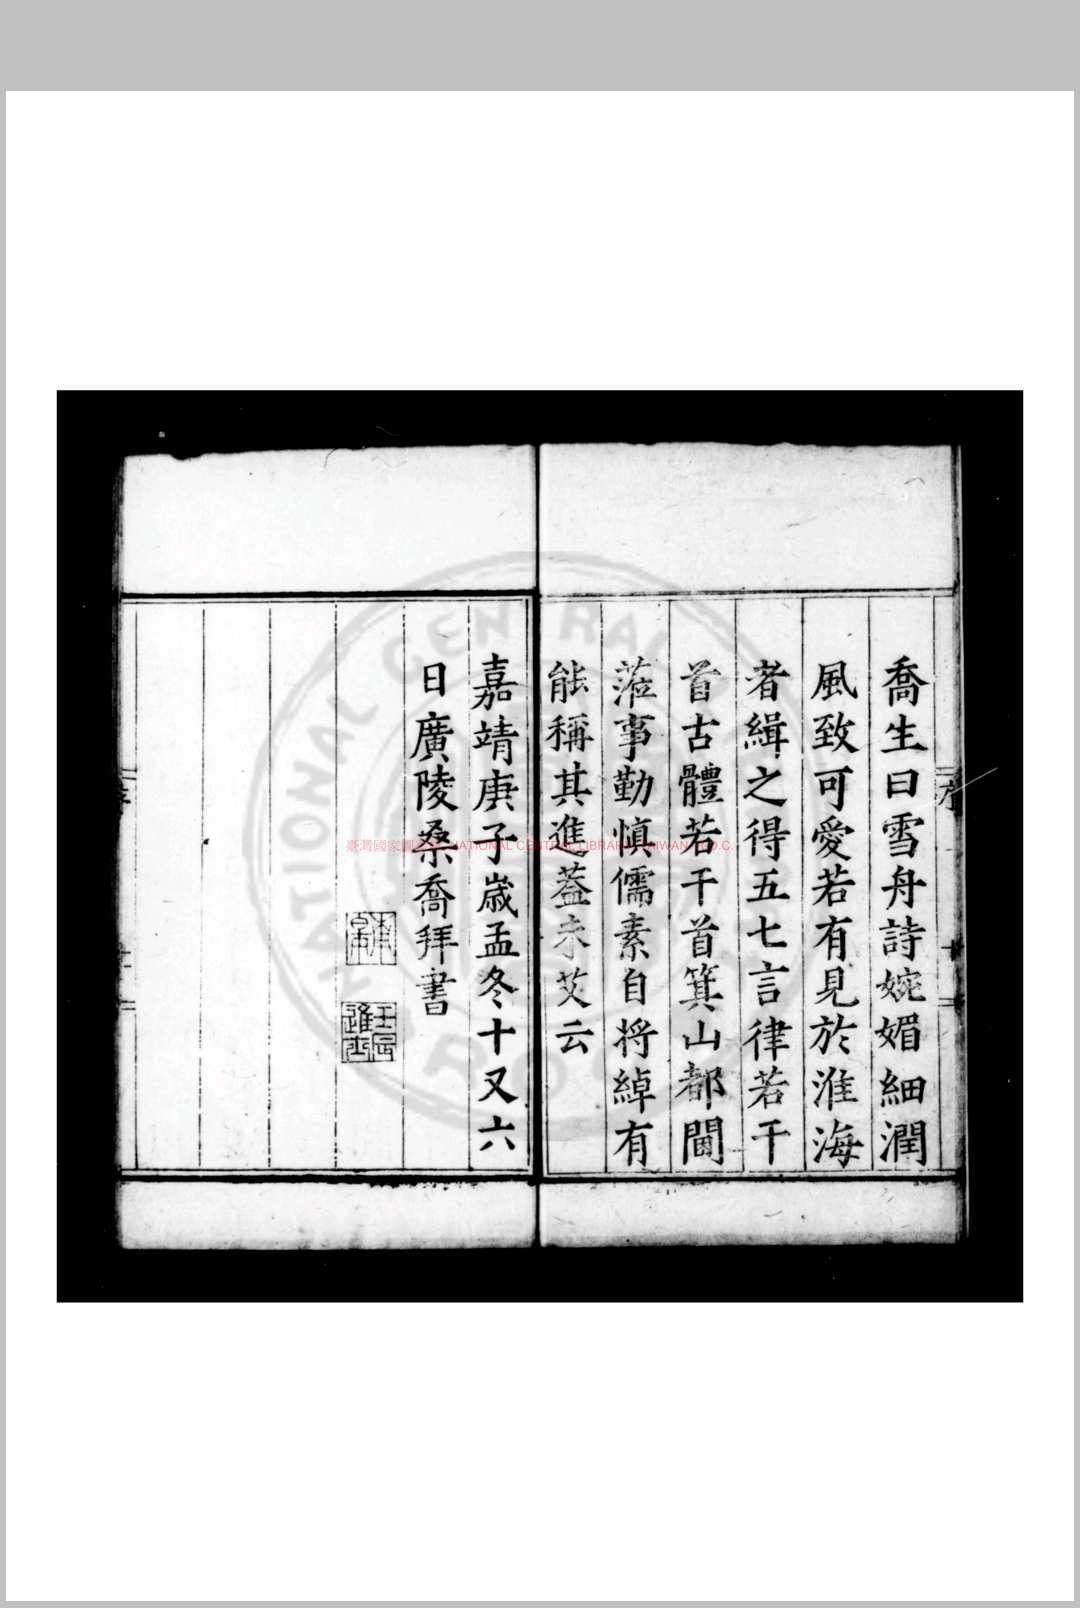 喬生曰雪舟詩婉媚細潤
風致可愛若有見於淮海
者緝之得五七言律若干
首古體若干首箕山都閫
蒞事勤慎儒素自將綽有
能稱其進蓋未艾云
嘉靖庚子歲孟冬十又六
日廣陵桑喬拜書
壬辰進士
序
臺灣國家圖 NATIONAL CENTRAL LIBRARY, TAIWAN, R.O.C.
NATIONAL CENTRAL